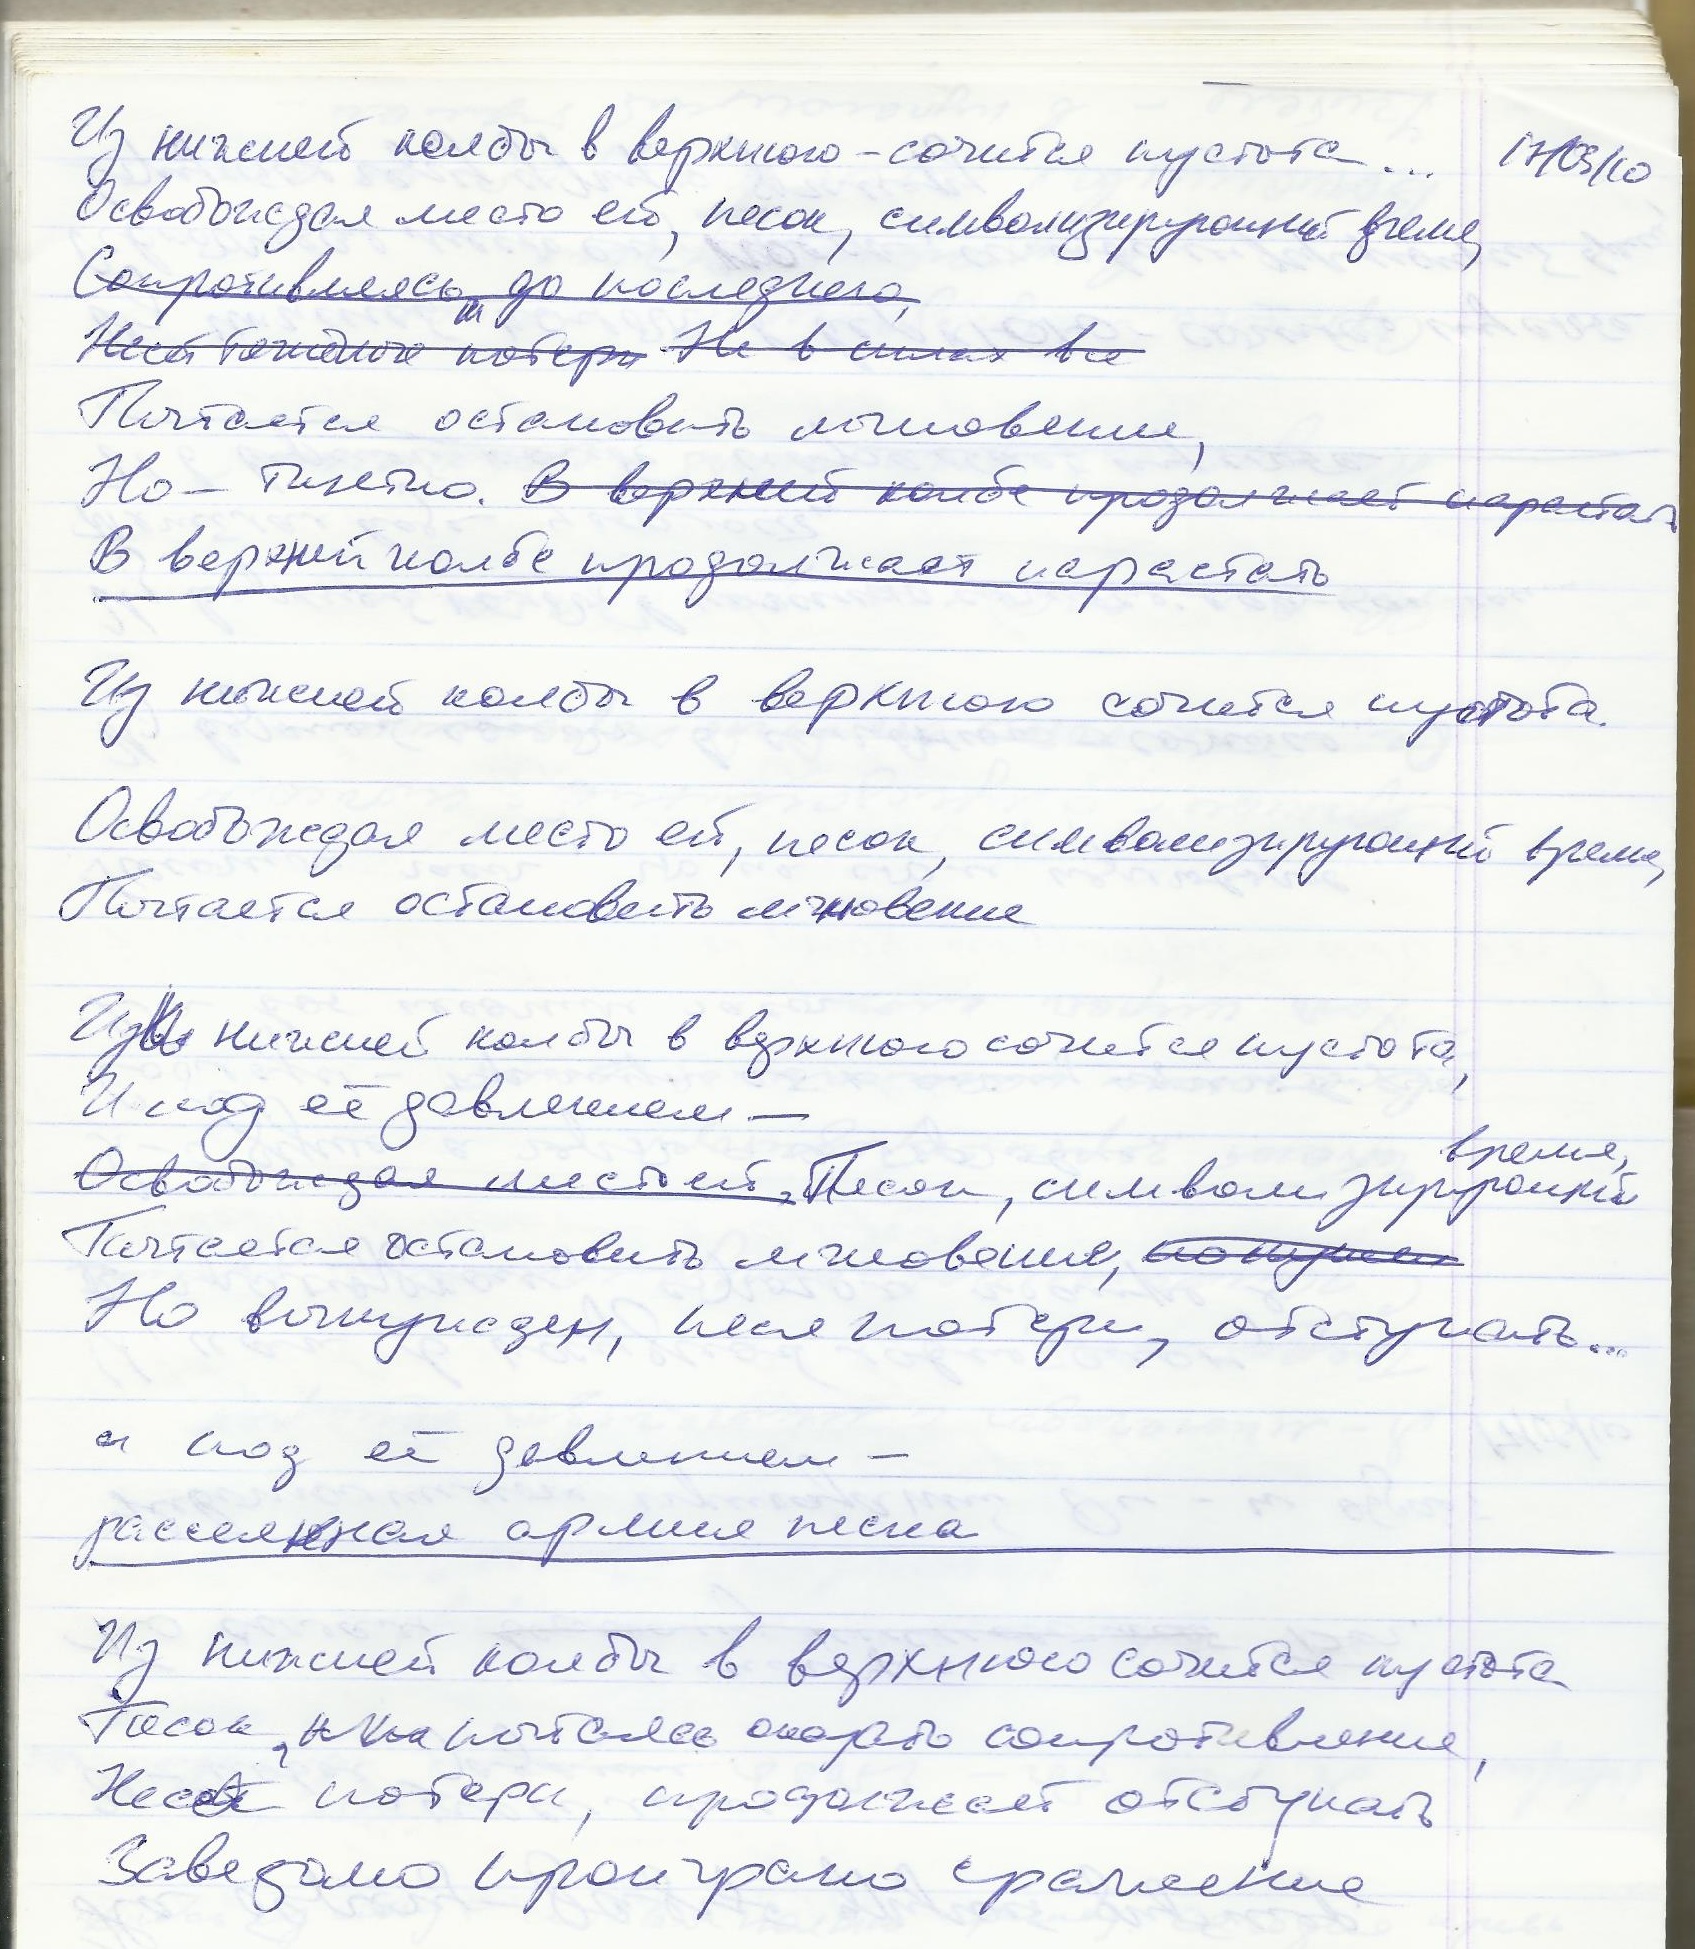 Из нижней колбы в верхнюю – сочится пустота... 17/03/10
Освобождая место ей, песок, символизирующий время,
Сопротивляясь до последнего,
потери Не в силах все
Пытается остановить мгновение,
Но – тщетно. В верхней колбе продолжает нарастать
В верхней колбе продолжает нарастать
Из нижней колбы в верхнюю сочится пустота.
Освобождая место ей, песок, символизирующий время,
Пытается остановить мгновение
Из нижней колбы в верхнюю сочится пустота,
И под её давлением –
время,
Освобождая место ей, Песок, символизирующий
Пытается остановить мгновение,
Но вынужден, неся потери, отступать...
и под её давлением –
рассеянная армия песка
Из нижней колбы в верхнюю сочится пустота
Песок, пытаясь оказать сопротивление,
Неся потери, продолжает отступать
Заведомо проиграно сражение